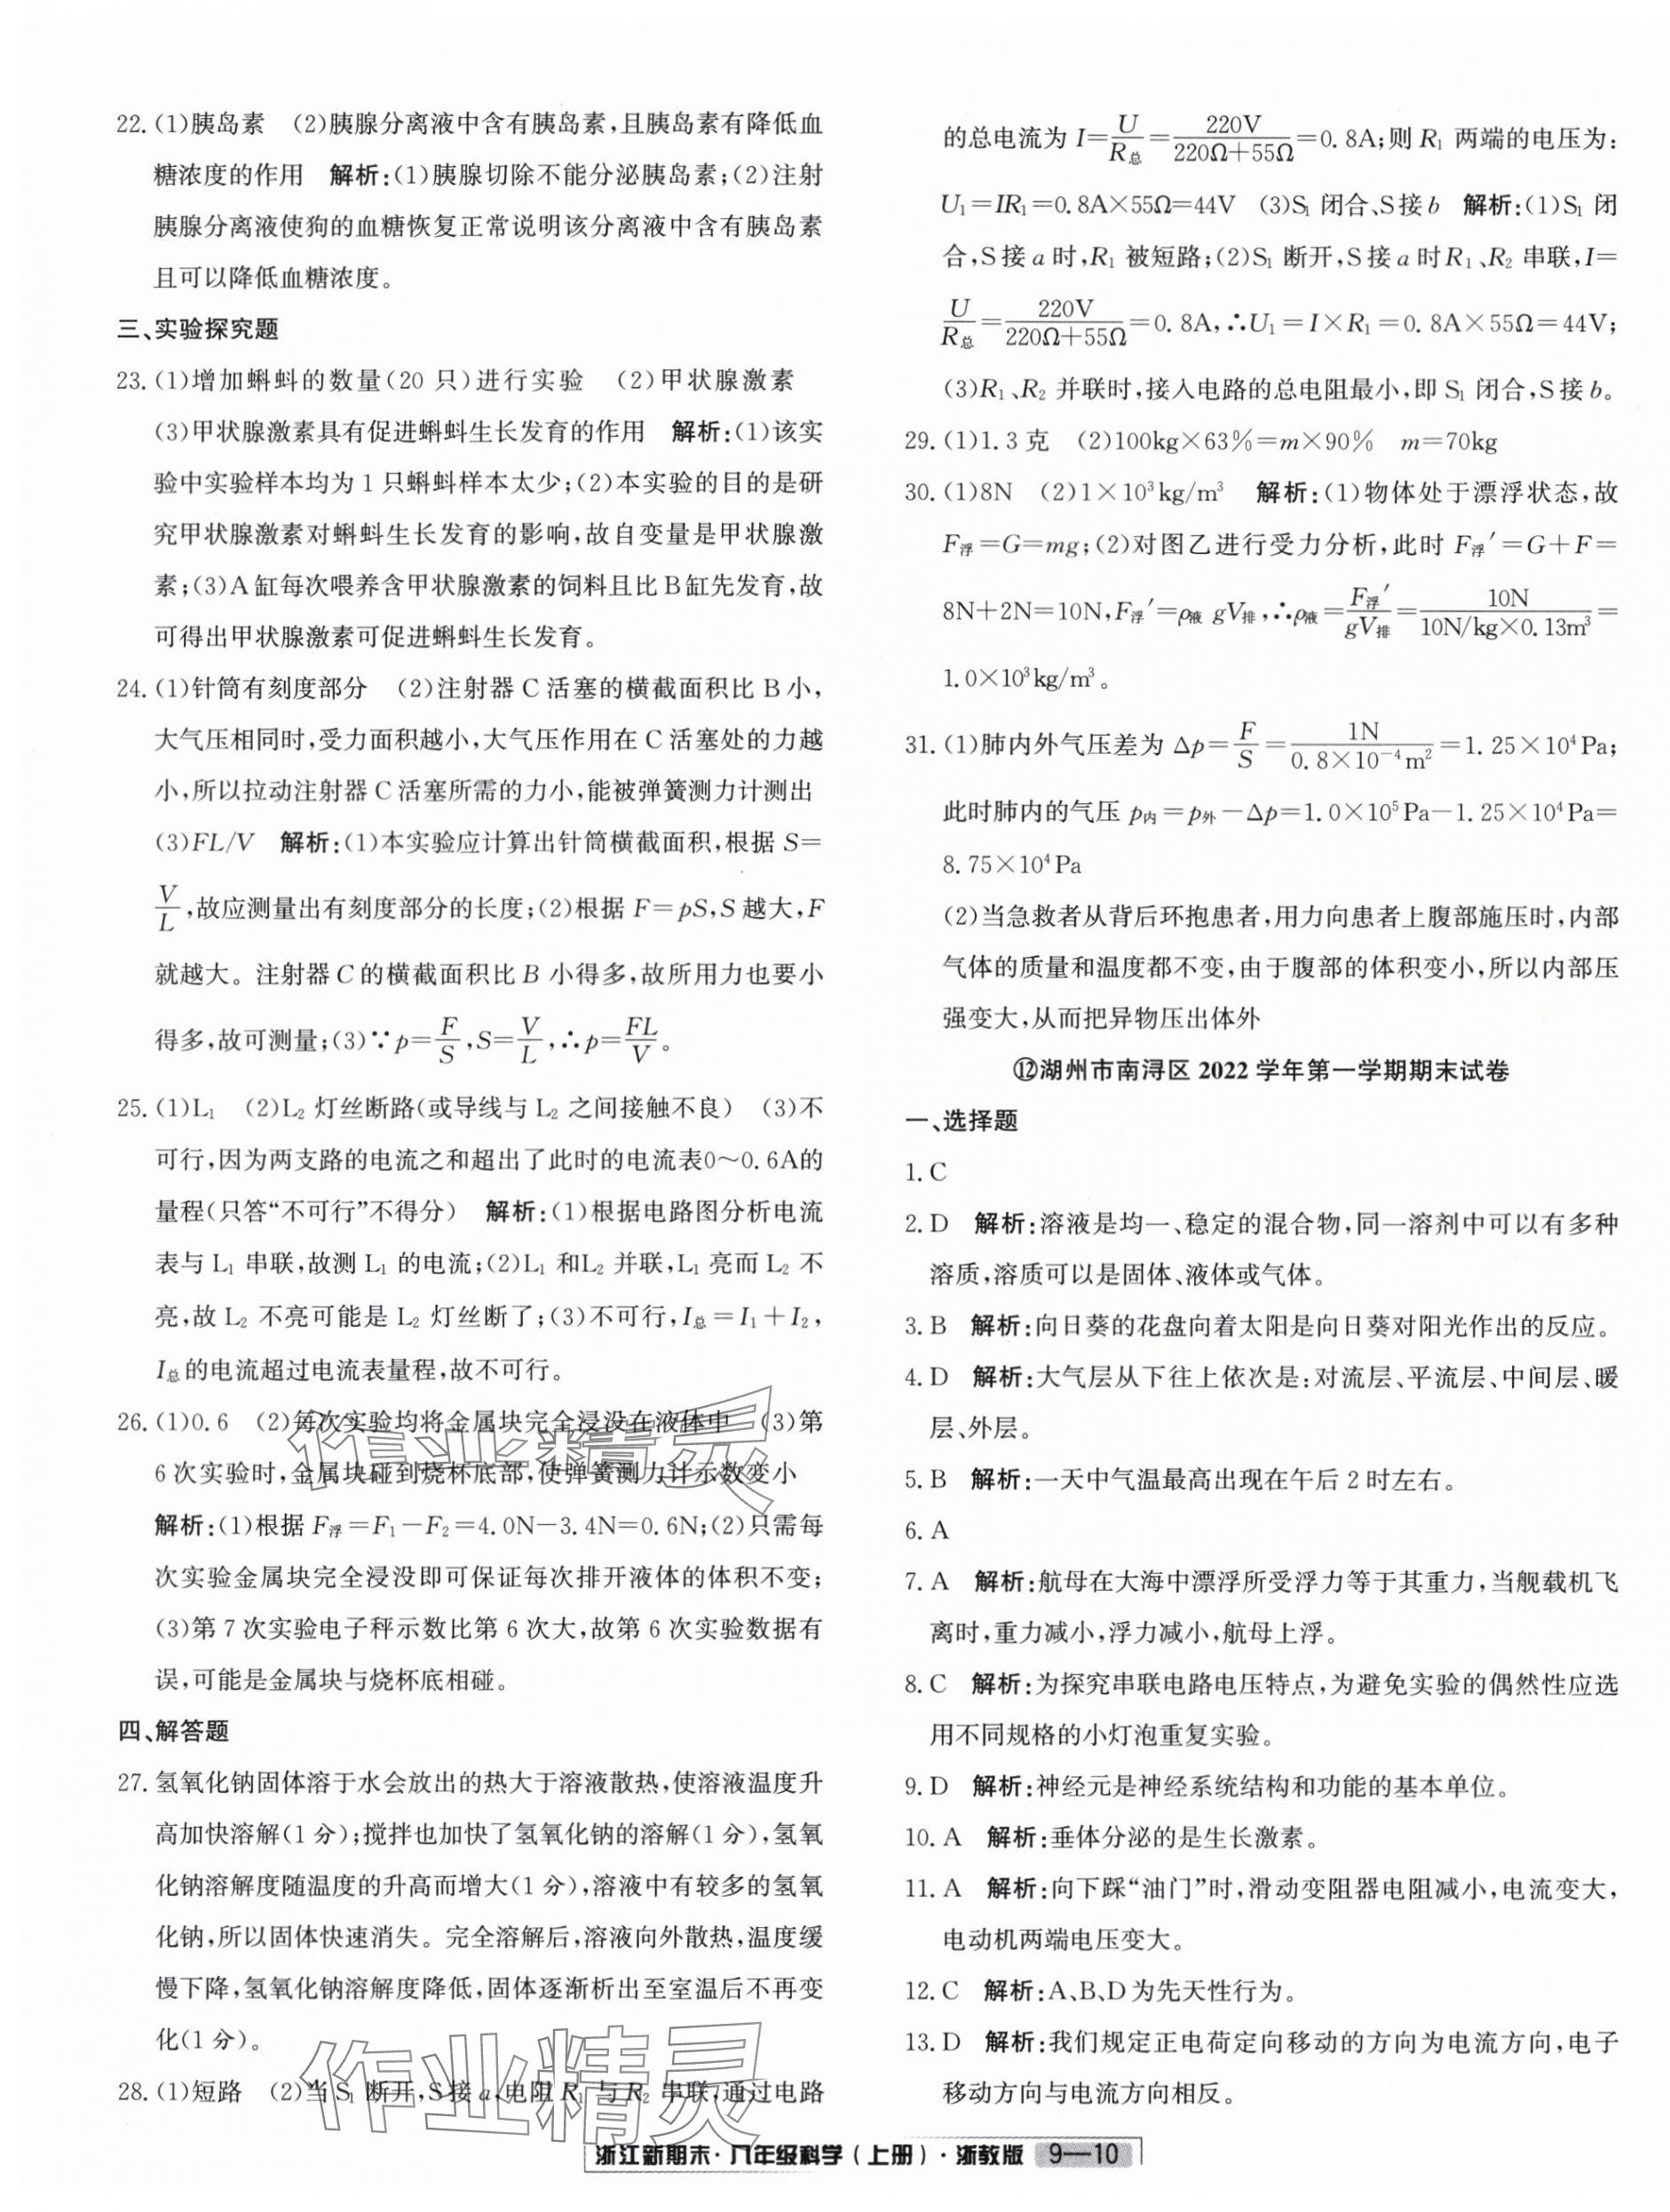 22. (1)胰岛素　(2)胰腺分离液中含有胰岛素,且胰岛素有降低血
糖浓度的作用　解析:(1)胰腺切除不能分泌胰岛素;(2)注射
胰腺分离液使狗的血糖恢复正常说明该分离液中含有胰岛素
且可以降低血糖浓度。
三、实验探究题
23. (1)增加蝌蚪的数量(20 只)进行实验　(2)甲状腺激素
(3)甲状腺激素具有促进蝌蚪生长发育的作用　解析:(1)该实
验中实验样本均为 1 只蝌蚪样本太少;(2)本实验的目的是研
究甲状腺激素对蝌蚪生长发育的影响,故自变量是甲状腺激
素;(3)A 缸每次喂养含甲状腺激素的饲料且比 B 缸先发育,故
可得出甲状腺激素可促进蝌蚪生长发育。
24. (1)针筒有刻度部分　(2)注射器 C 活塞的横截面积比 B 小,
大气压相同时,受力面积越小,大气压作用在 C 活塞处的力越
小,所以拉动注射器 C 活塞所需的力小,能被弹簧测力计测出
(3)FL/V　解析:(1)本实验应计算出针筒横截面积,根据 S=
V/L,故应测量出有刻度部分的长度;(2)根据 F=pS,S 越大,F
就越大。注射器 C 的横截面积比 B 小得多,故所用力也要小
得多,故可测量;(3)∵p=F/S,S=V/L,∴p=FL/V。
25. (1)L₁　(2)L₂ 灯丝断路(或导线与 L₂ 之间接触不良)　(3)不
可行,因为两支路的电流之和超出了此时的电流表0～0.6A的
量程(只答“不可行”不得分)　解析:(1)根据电路图分析电流
表与 L₁ 串联,故测 L₁ 的电流;(2)L₁ 和L₂ 并联,L₁ 亮而 L₂ 不
亮,故 L₂ 不亮可能是 L₂ 灯丝断了;(3)不可行,I总=I₁+I₂,
I总的电流超过电流表量程,故不可行。
26. (1)0.6　(2)每次实验均将金属块完全浸没在液体中　(3)第
6 次实验时,金属块碰到烧杯底部,使弹簧测力计示数变小
解析:(1)根据 F浮=F₁-F₂=4.0N-3.4N=0.6N;(2)只需每
次实验金属块完全浸没即可保证每次排开液体的体积不变;
(3)第 7 次实验电子秤示数比第 6 次大,故第 6 次实验数据有
误,可能是金属块与烧杯底相碰。
四、解答题
27. 氢氧化钠固体溶于水会放出的热大于溶液散热,使溶液温度升
高加快溶解(1 分);搅拌也加快了氢氧化钠的溶解(1 分),氢氧
化钠溶解度随温度的升高而增大(1 分),溶液中有较多的氢氧
化钠,所以固体快速消失。完全溶解后,溶液向外散热,温度缓
慢下降,氢氧化钠溶解度降低,固体逐渐析出至室温后不再变
化(1 分)。
28. (1)短路　(2)当 S₁ 断开,S接 a,电阻 R₁ 与 R₂ 串联,通过电路
的总电流为 I=U/R总=220V/(220Ω+55Ω)=0.8A;则 R₁ 两端的电压为:
U₁=IR₁=0.8A×55Ω=44V　(3)S₁ 闭合、S接 b　解析:(1)S₁ 闭
合,S接 a 时,R₁ 被短路;(2)S₁ 断开,S接 a 时R₁、R₂ 串联,I=
U/R总=220V/(220Ω+55Ω)=0.8A,∴U₁=I×R₁=0.8A×55Ω=44V;
(3)R₁、R₂ 并联时,接入电路的总电阻最小,即 S₁ 闭合,S接 b。
29. (1)1.3 克　(2)100kg×63%=m×90%　m=70kg
30. (1)8N　(2)1×10³kg/m³　解析:(1)物体处于漂浮状态,故
F浮=G=mg;(2)对图乙进行受力分析,此时 F浮′=G+F=
8N+2N=10N,F浮′=ρ液 gV排,∴ρ液=F浮′/gV排=10N/(10N/kg×0.13m³)=
1.0×10³kg/m³。
31. (1)肺内外气压差为 Δp=F/S=1N/(0.8×10⁻⁴m²)=1.25×10⁴Pa;
此时肺内的气压 p内=p外-Δp=1.0×10⁵Pa-1.25×10⁴Pa=
8.75×10⁴Pa
(2)当急救者从背后环抱患者,用力向患者上腹部施压时,内部
气体的质量和温度都不变,由于腹部的体积变小,所以内部压
强变大,从而把异物压出体外
⑫湖州市南浔区 2022 学年第一学期期末试卷
一、选择题
1. C
2. D　解析:溶液是均一、稳定的混合物,同一溶剂中可以有多种
溶质,溶质可以是固体、液体或气体。
3. B　解析:向日葵的花盘向着太阳是向日葵对阳光作出的反应。
4. D　解析:大气层从下往上依次是:对流层、平流层、中间层、暖
层、外层。
5. B　解析:一天中气温最高出现在午后 2 时左右。
6. A
7. A　解析:航母在大海中漂浮所受浮力等于其重力,当舰载机飞
离时,重力减小,浮力减小,航母上浮。
8. C　解析:为探究串联电路电压特点,为避免实验的偶然性应选
用不同规格的小灯泡重复实验。
9. D　解析:神经元是神经系统结构和功能的基本单位。
10. A　解析:垂体分泌的是生长激素。
11. A　解析:向下踩“油门”时,滑动变阻器电阻减小,电流变大,
电动机两端电压变大。
12. C　解析:A、B、D为先天性行为。
13. D　解析:我们规定正电荷定向移动的方向为电流方向,电子
移动方向与电流方向相反。
作业精灵
作业精灵
浙江新期末·八年级科学(上册)·浙教版 9—10